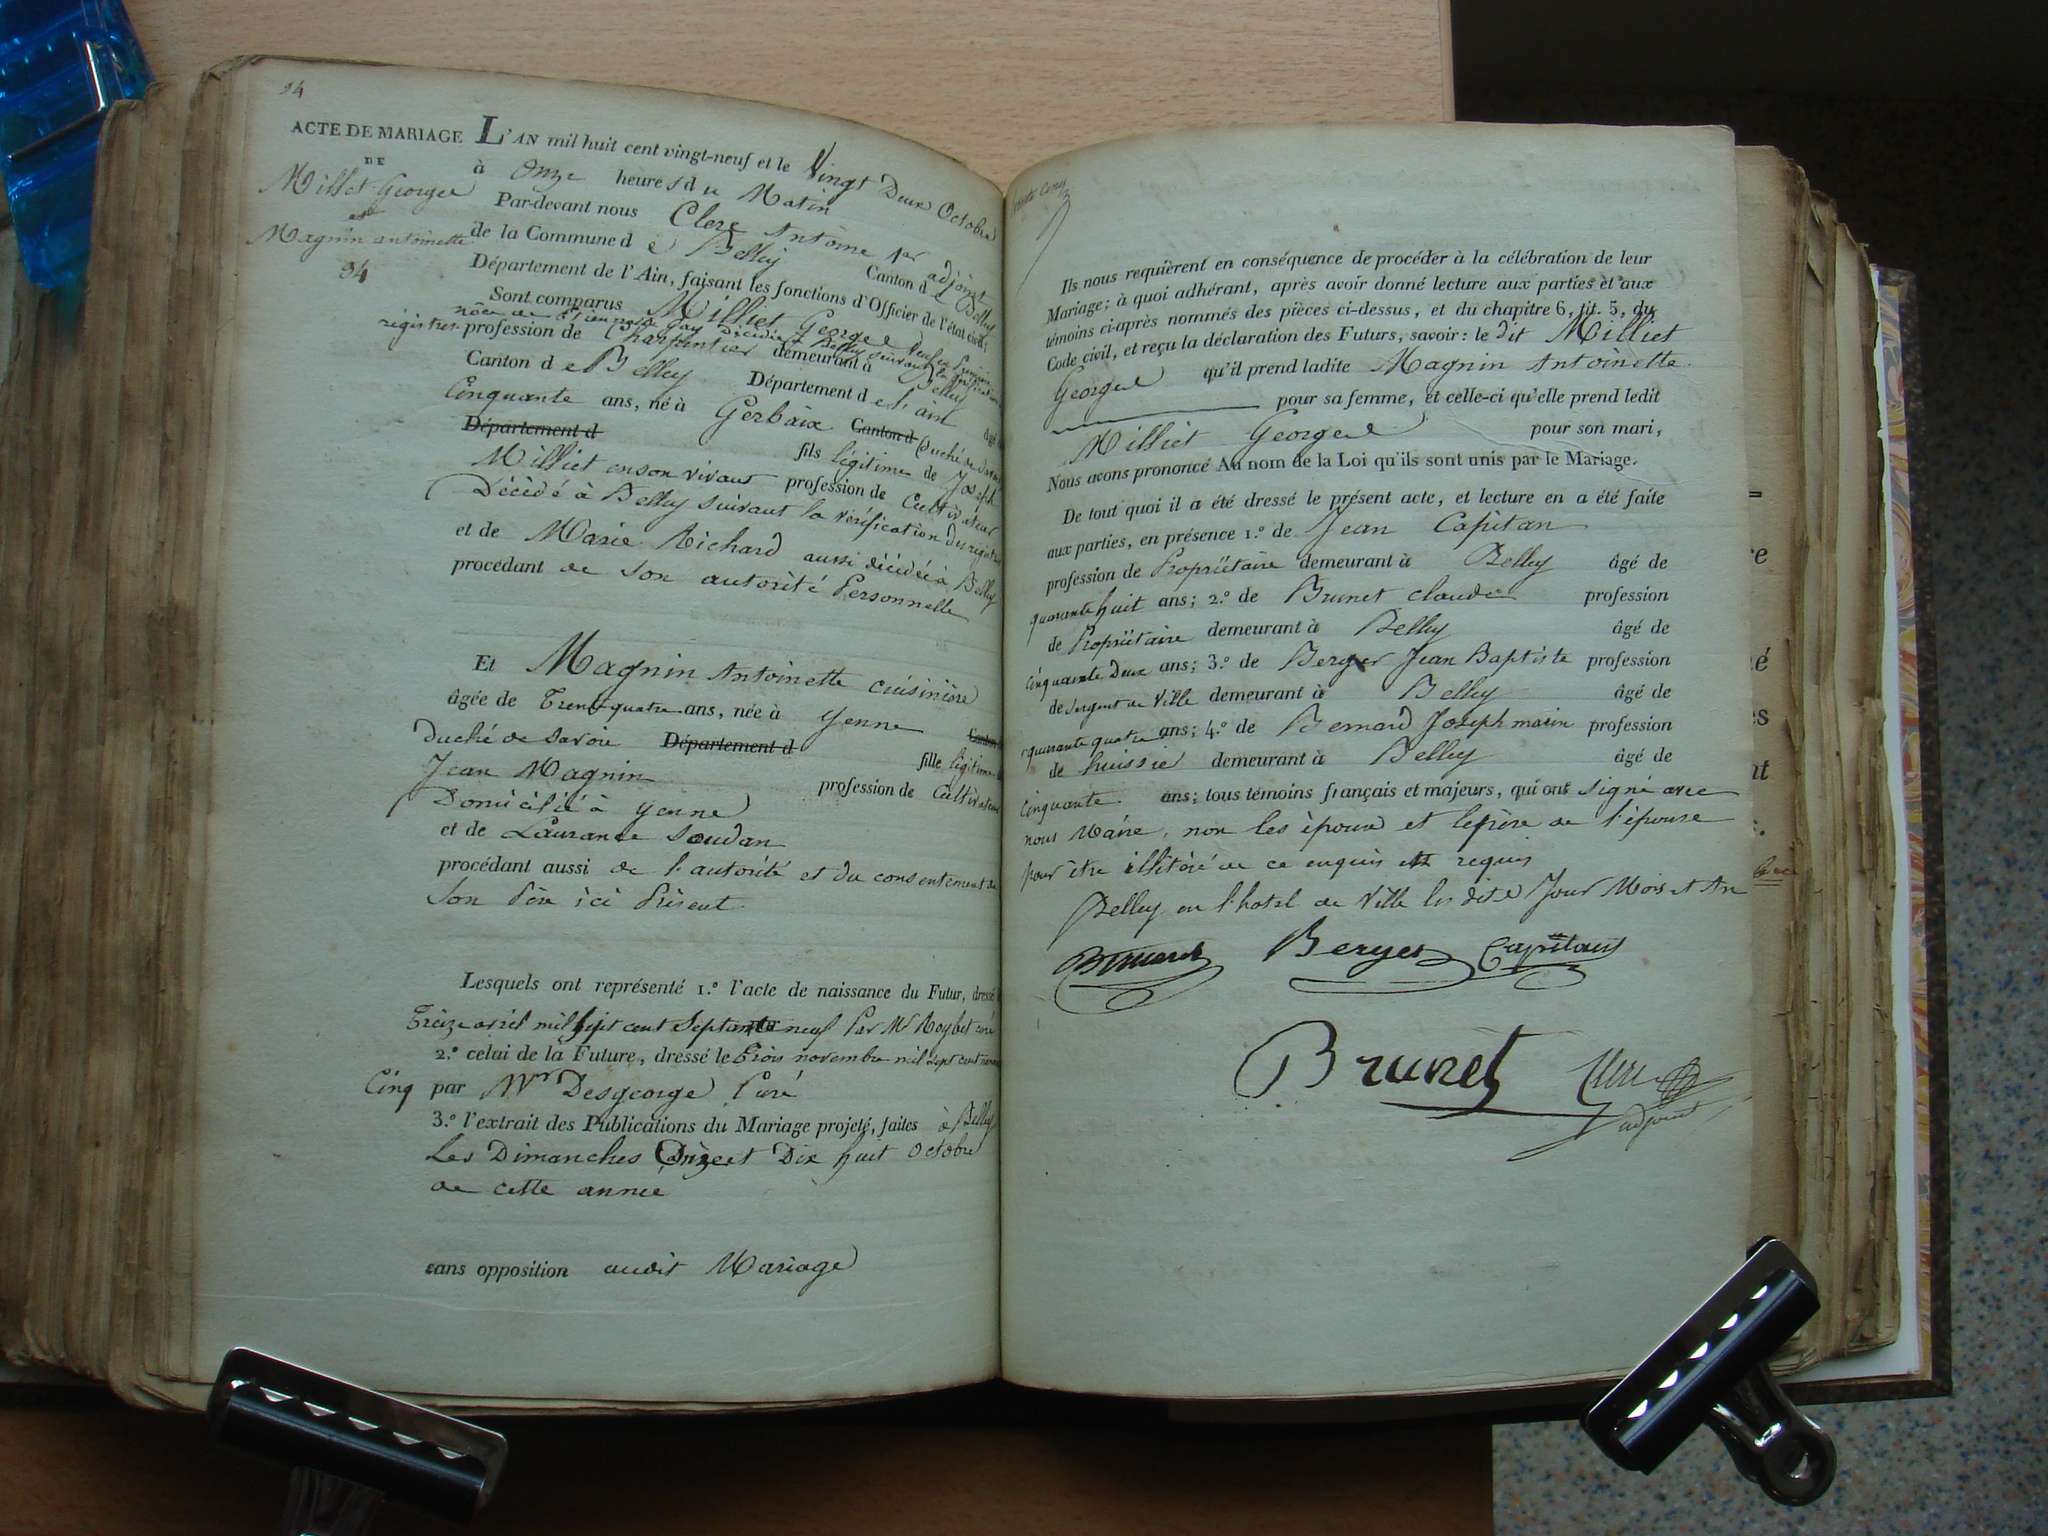 94
ACTE DE MARIAGE
DE
Millet George
et
Magnin antoinette
94
L'AN mil huit cent vingt-neuf et le Vingt Deux Octobre
à Onze heures du Matin
Par-devant nous Clerc Antoine 1er adjoint
de la Commune de Belley Canton de Belley
Département de l'Ain, faisant les fonctions d'Officier de l'état civil;
Sont comparus Milliet George
registres profession de Charpentier demeurant à Belley
Canton de Belley Département de l'ain âgé
Cinquante ans, né à Gerbaix Canton d Duché de
Département d fils légitime de Joseph
Milliet en son vivant profession de Cultivateur
Décédé à Belley suivant la vérification des registres
et de Marie Richard aussi décédée à Belley
procédant de son autorité Personnelle
Et Magnin Antoinette cuisinière
âgée de Trente quatre ans, née à yenne Canton
Duché de Savoie Département d fille légitime
Jean Magnin profession de Cultivateur
Domicilié à yenne
et de Laurance Soudan
procédant aussi de l'autorité et du consentement de
Son Père ici Présent
Lesquels ont représenté 1.º l'acte de naissance du Futur, dressé
Treize avril mil sept cent Septante neuf Par Mr Roybet curé
2.º celui de la Future, dressé le trois novembre mil sept cent
Cinq par Mr Desgeorge Curé
3.º l'extrait des Publications du Mariage projeté, faites à Belley
Les Dimanches Onze et Dix huit Octobre
de cette année
sans opposition audit Mariage
Ils nous requièrent en conséquence de procéder à la célébration de leur
Mariage; à quoi adhérant, après avoir donné lecture aux parties et aux
témoins ci-après nommés des pièces ci-dessus, et du chapitre 6, tit. 5, du
Code civil, et reçu la déclaration des Futurs, savoir: le dit Milliet
George qu'il prend ladite Magnin Antoinette
pour sa femme, et celle-ci qu'elle prend ledit
Milliet George pour son mari,
Nous avons prononcé Au nom de la Loi qu'ils sont unis par le Mariage.
De tout quoi il a été dressé le présent acte, et lecture en a été faite
aux parties, en présence 1.º de Jean Capitan
profession de Propriétaire demeurant à Belley âgé de
quarante huit ans; 2.º de Brunet claude profession
de Propriétaire demeurant à Belley âgé de
cinquante Deux ans; 3.º de Berger Jean Baptiste profession
de sergent de Ville demeurant à Belley âgé de
quarante quatre ans; 4.º de Bernard Joseph marin profession
de huissié demeurant à Belley âgé de
Cinquante ans; tous témoins français et majeurs, qui ont signé avec
nous Maire, non les époux et le père de l'épouse
pour être illitéré de ce enquis et requis
Belley en l'hotel de Ville les dits Jour Mois et An
Bernard Berger Capitan
Brunet Clerc
adjoint